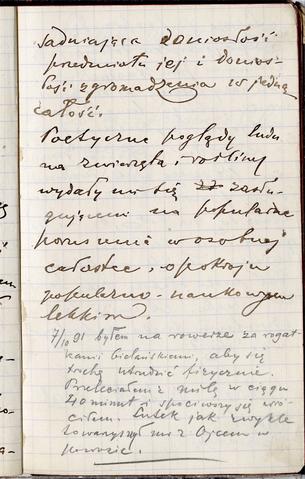 sadniająca doniosłość
przedmiotu jej i donios-
łość zgromadzenia w jedną
całość.
Poetyczne poglądy ludu
na zwierzęta i rośliny
wydały mi się zasłu-
gującemi na popularne
poruszenie w osobnej
całostce, o pokroju
popularno-naukowym
lekkim.
7/10 91 byłem na rowerze za rogat-
kami bielańskiemi, aby się
trochę utrudzić fizycznie.
Przeleciałem z milę w ciągu
40 minut i spoczywszy wró-
ciłem. Lutek jak zwykle
towarzyszył mi z Ojcem w
powozie.